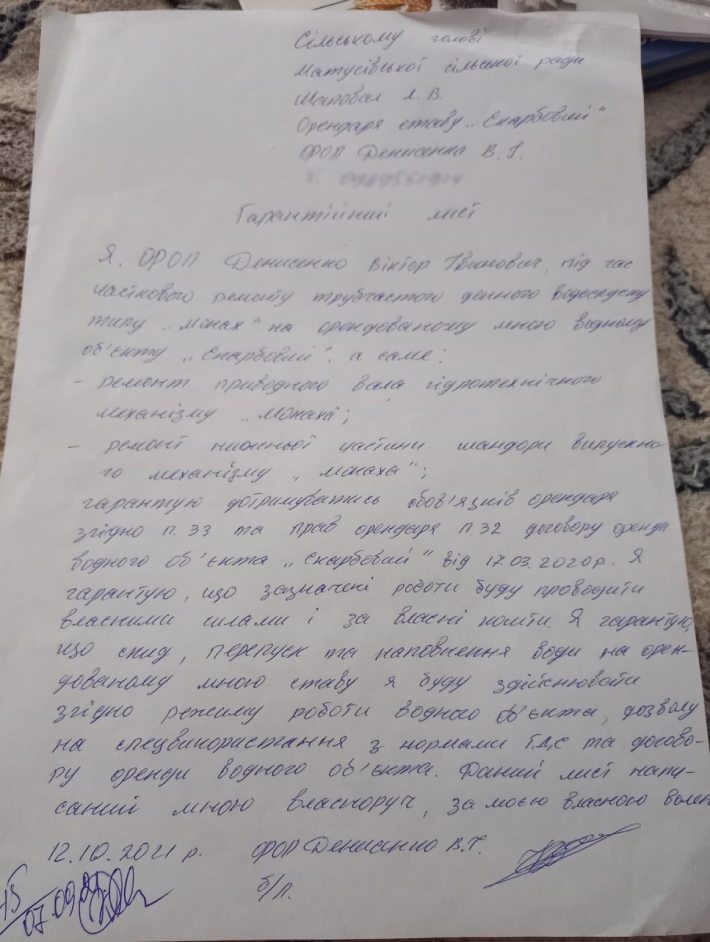 Сільському голові
Матусівської сільської ради
Шаповал Л. В.
Орендаря ставу „Скарбовий"
ФОП Денисенка В. І.
Гарантійний лист
Я, ФОП Денисенко Віктор Іванович, під час
часткового ремонту трубчастого донного водоспуску
типу „Монах" на орендованому мною водному
об'єкту „Скарбовий", а саме:
- ремонт приводного вала гідротехнічного
механізму „Монаха";
- ремонт нижньої частини шандори випускно-
го механізму „Монаха";
гарантую дотримуватись обов'язків орендаря
згідно п. 33 та прав орендаря п. 32 договору оренди
водного об'єкта „Скарбовий" від 17.03.2020р. Я
гарантую, що зазначені роботи буду проводити
власними силами і за власні кошти. Я гарантую,
що скид, перепуск та наповнення води на орен-
дованому мною ставу я буду здійснювати
згідно режиму роботи водного об'єкта, дозволу
на спецвикористання з нормами ГДС та догово-
ру оренди водного об'єкта. Даний лист напи-
саний мною власноруч, за моєю власною волею
12.10.2021 р. ФОП Денисенко В.І.
б/п.